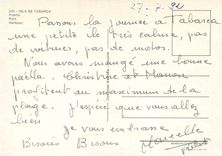 27-7-92
ISLA DE TABARCA
Puerto
Port
Passons la journée à Tabarca
une petite île très calme, pas
de voitures, pas de motos.
Nous avons mangé une bonne
paella. Christine et Manon
profitent au maximum de la
plage. J'espère que vous allez
bien
Je vous embrasse
Bisous Bisous